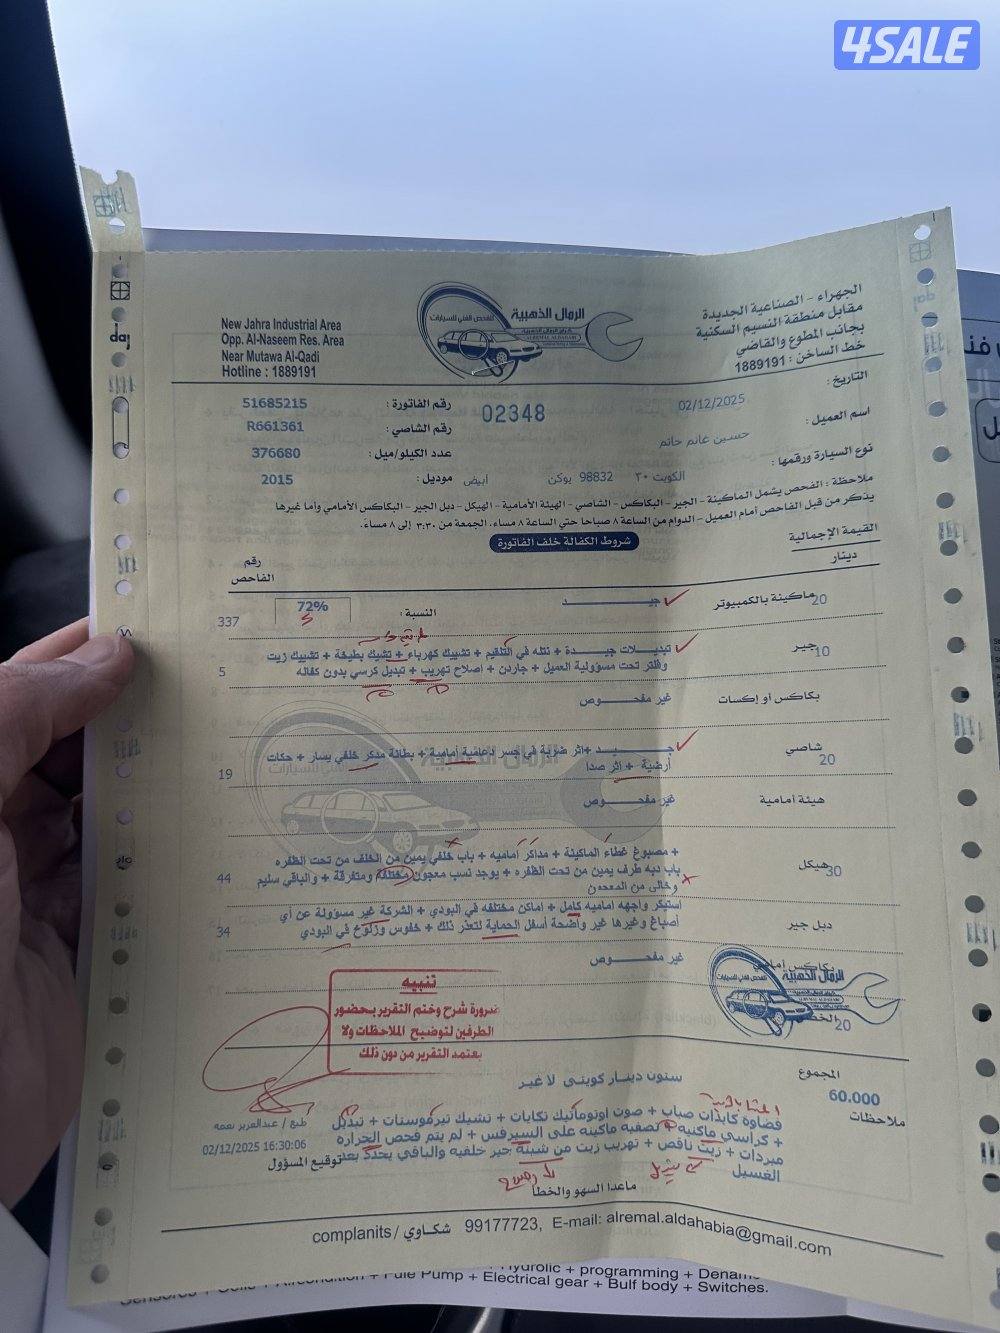 4SALE
الجهراء - الصناعية الجديدة
مقابل منطقة النسيم السكنية
بجانب المطوع والقاضي
خط الساخن : 1889191
الرمال الذهبية
للفحص الفني للسيارات
New Jahra Industrial Area
Opp. Al-Naseem Res. Area
Near Mutawa Al-Qadi
Hotline : 1889191
التاريخ : 02/12/2025
02348
رقم الفاتورة : 51685215
اسم العميل : حسين غانم حاتم
رقم الشاصي : R661361
عدد الكيلو/ميل : 376680
نوع السيارة ورقمها : الكويت ٢٠ 98832 يوكن أبيض
موديل : 2015
ملاحظة : الفحص يشمل الماكينة - الجير - البكاكس - الشاصي - الهيئة الأمامية - الهيكل - دبل الجير - البكاكس الأمامي وأما غيرها
يذكر من قبل الفاحص أمام العميل - الدوام من الساعة ٨ صباحا حتى الساعة ٨ مساء، الجمعة من ٣:٣٠ إلى ٨ مساءً.
شروط الكفالة خلف الفاتورة
القيمة الإجمالية
دينار
رقم
الفاحص
ماكينة بالكمبيوتر 20 جيد النسبة : 72% 337
جير 10 تبديلات جيدة + نتله في التلقيم + تشييك كهرباء + تشيك بطيخة + تشييك زيت
وفلتر تحت مسؤولية العميل + جاردن + اصلاح تهريب + تبديل كرسي بدون كفاله 5
بكاكس أو إكسات غير مفحوص
شاصي 20 جيد + اثر ضربة في جسر دعامية أمامية + بطانة مدكر خلفي يسار + حكات
أرضية + اثر صدا 19
هيئة أمامية غير مفحوص
هيكل 30 + مصبوغ غطاء الماكينة + مداكر أماميه + باب خلفي يمين من الخلف من تحت الظفره
باب دبه طرف يمين من تحت الظفره + يوجد نسب معجون مختلفة ومتفرقة + والباقي سليم
وخالي من المعجون 44
استيكر واجهه اماميه كامل + اماكن مختلفه في البودي + الشركة غير مسؤولة عن أي
دبل جير أصباغ وغيرها غير واضحة أسفل الحماية لتعذر ذلك + خفوس وزلوخ في البودي 34
بكاكس أمامي غير مفحوص
الرمال الذهبية
للفحص الفني للسيارات
الخصم 20
تنبيه
ضرورة شرح وختم التقرير بحضور
الطرفين لتوضيح الملاحظات ولا
يعتمد التقرير من دون ذلك
المجموع
60.000 ستون دينار كويتي لا غير
ملاحظات
فضاوة كابذات صباب + صوت اوتوماتيك تكايات + تشيك ثيرموستات + تبديل
+ كراسي ماكينه + تصفيه ماكينه على السيرفس + لم يتم فحص الحراره
مبردات + زيت ناقص + تهريب زيت من شبثة جير خلفيه والباقي يحدد بعد
الغسيل
طبع / عبدالعزيز نعمه
02/12/2025 16:30:06
توقيع المسؤول
ماعدا السهو والخطأ
complanits / شكاوي 99177723, E-mail: alremal.aldahabia@gmail.com
+ Fule Pump + Electrical gear + Bulf body + Switches.